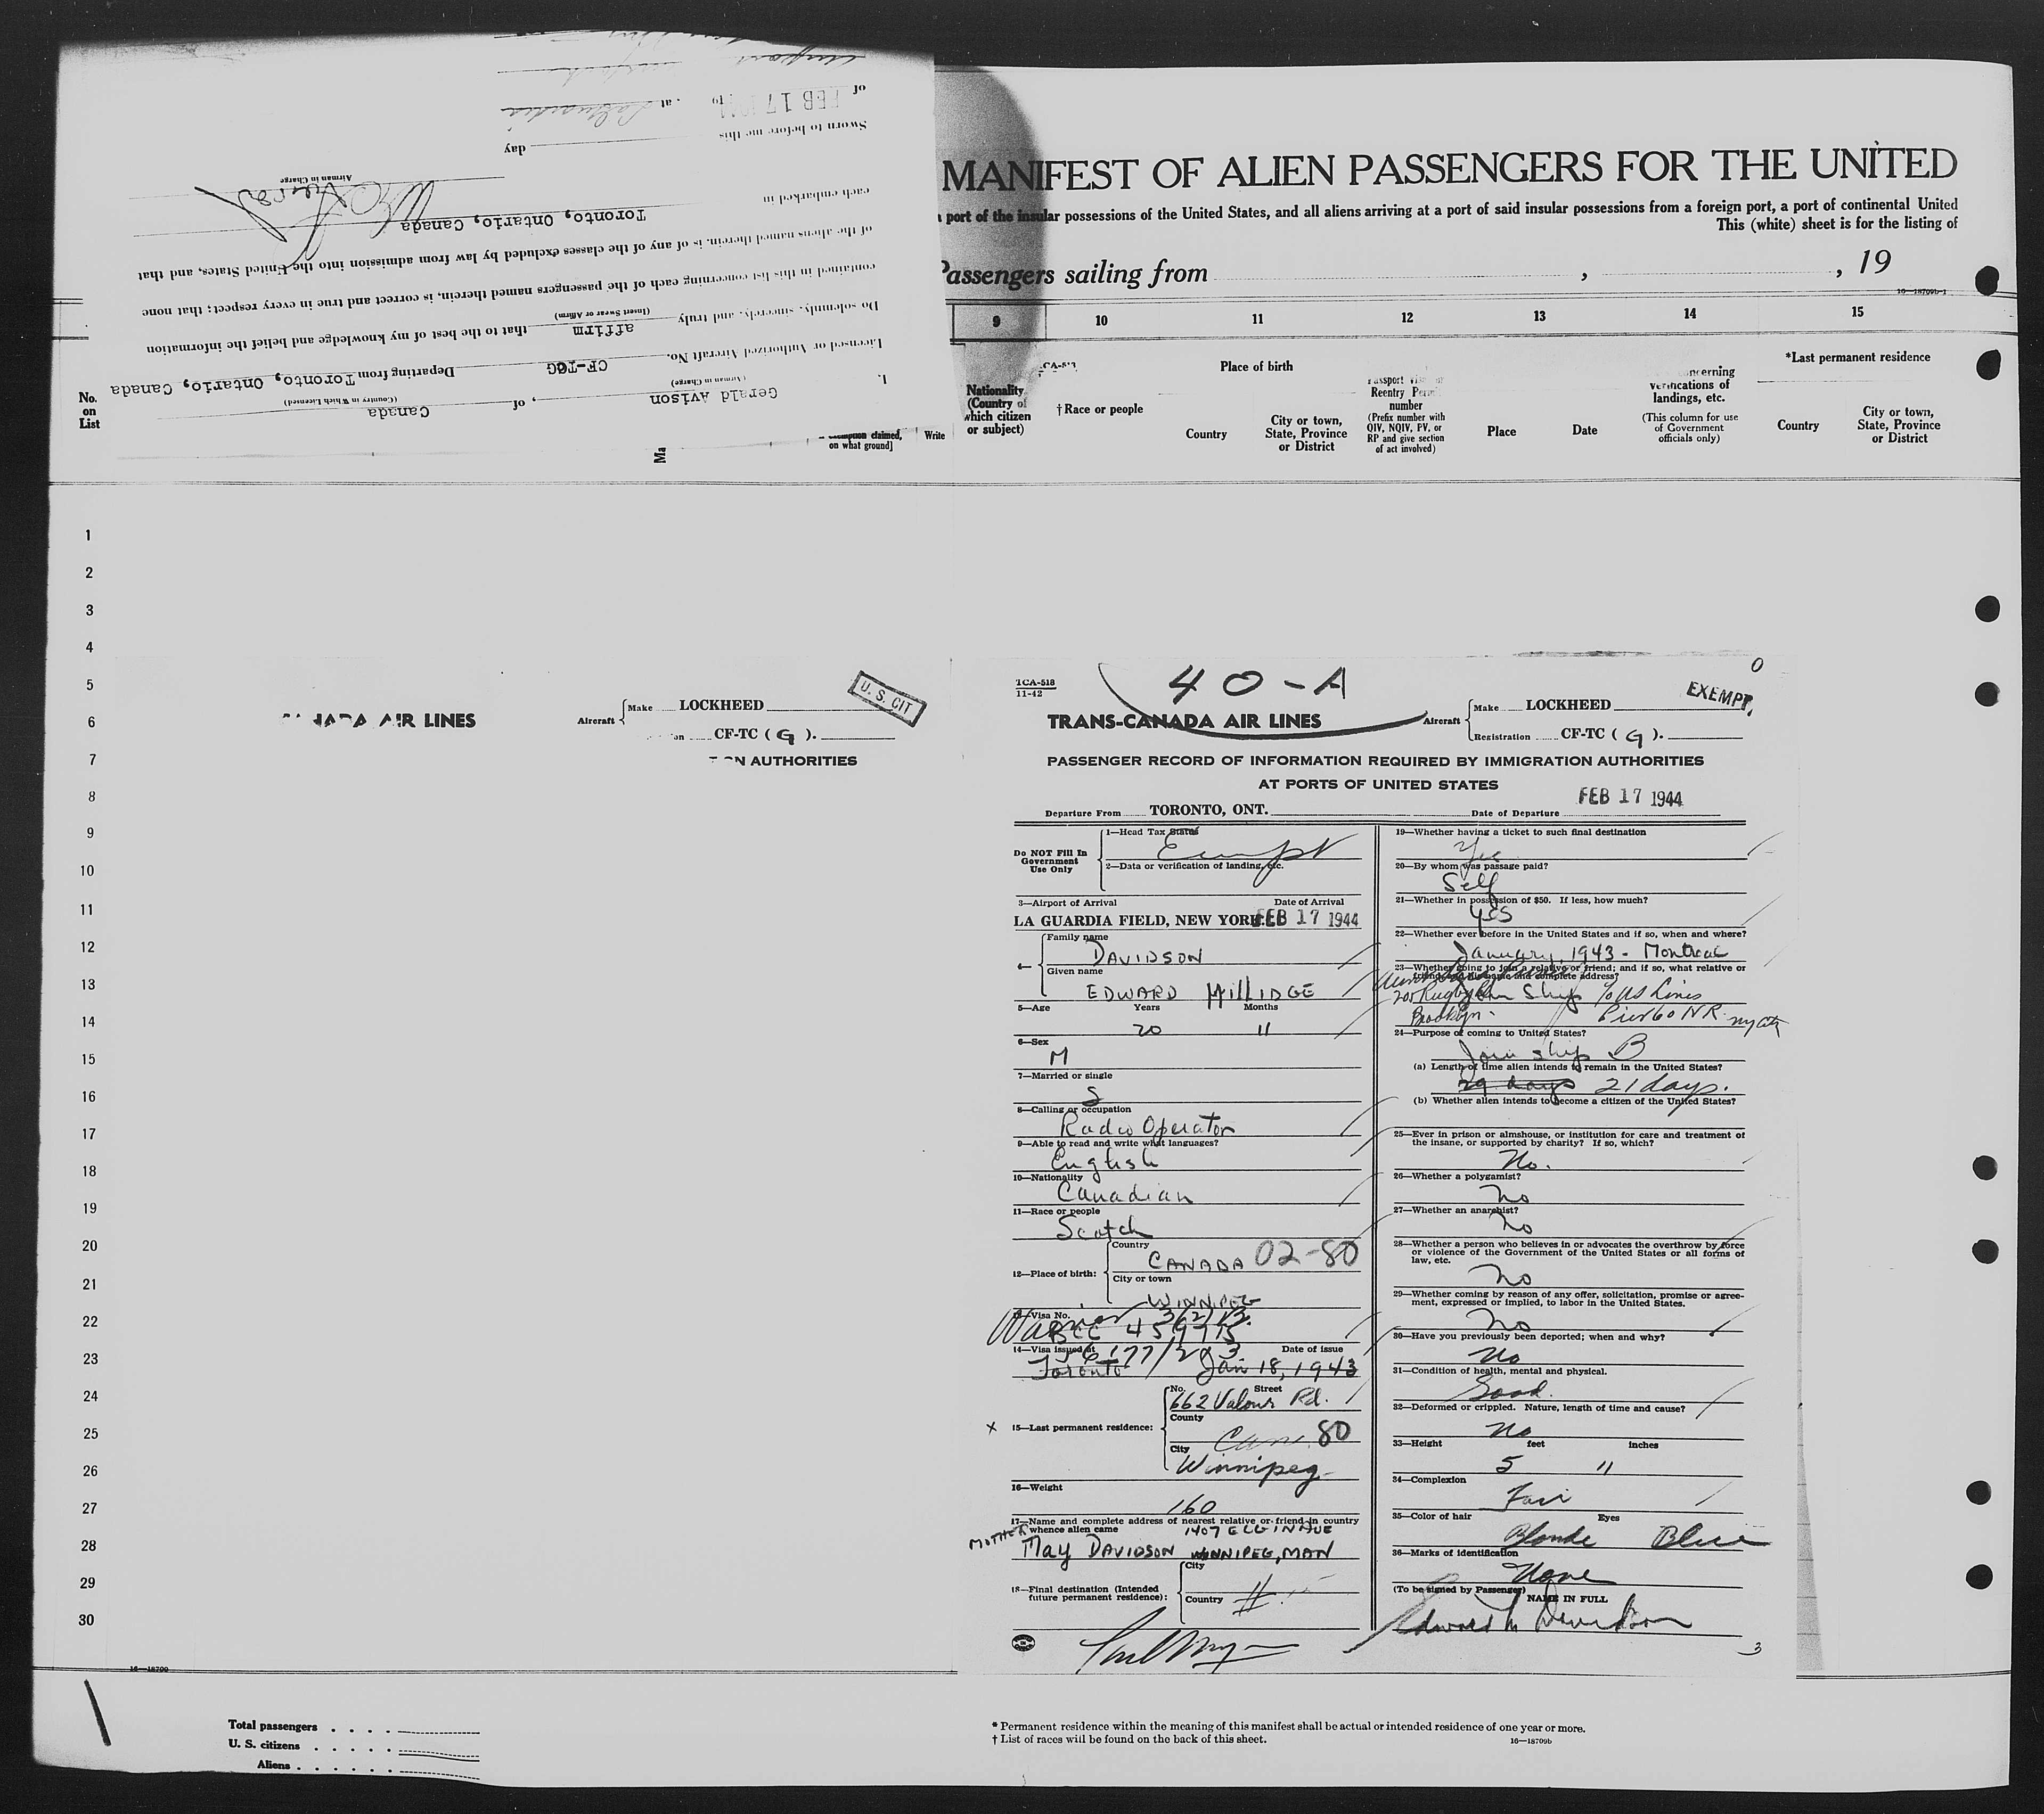 of
FEB 17
to
at
Sworn to before me this
day
Airman in Charge
each embarked in
Toronto, Ontario, Canada
of the aliens named therein, is of any of the classes excluded by law from admission into the United States, and that
contained in this list concerning each of the passengers named therein, is correct and true in every respect; that none
(Insert Swear or Affirm)
Do solemnly, sincerely, and truly affirm that to the best of my knowledge and belief the information
Licensed or Authorized Aircraft No. CF-TCG Departing from Toronto, Ontario, Canada
(Airman in Charge)
(Country in Which Licensed)
I, Gerald Avison, of Canada
MANIFEST OF ALIEN PASSENGERS FOR THE UNITED
port of the insular possessions of the United States, and all aliens arriving at a port of said insular possessions from a foreign port, a port of continental United
This (white) sheet is for the listing of
Passengers sailing from , , 19
16—18709b-1
9 10 11 12 13 14 15
No. on List
exemption claimed, on what ground]
Write
Ma
Nationality (Country of which citizen or subject)
†Race or people
Place of birth
Country
City or town, State, Province or District
Passport Visa or Reentry Permit number
(Prefix number with QIV, NQIV, PV, or RP and give section of act involved)
Place
Date
concerning verifications of landings, etc.
(This column for use of Government officials only)
*Last permanent residence
Country
City or town, State, Province or District
1
2
3
4
5
6
7
8
9
10
11
12
13
14
15
16
17
18
19
20
21
22
23
24
25
26
27
28
29
30
AIR LINES
Aircraft
Make LOCKHEED
CF-TC ( G ).
U. S. CIT
AUTHORITIES
TCA-518
11-42
40-A
0
EXEMPT,
TRANS-CANADA AIR LINES
Aircraft
Make LOCKHEED
Registration CF-TC ( G ).
PASSENGER RECORD OF INFORMATION REQUIRED BY IMMIGRATION AUTHORITIES
AT PORTS OF UNITED STATES
Departure From TORONTO, ONT. Date of Departure FEB 17 1944
Do NOT Fill In Government Use Only
1—Head Tax Status
Exempt
2—Data or verification of landing, etc.
3—Airport of Arrival Date of Arrival
LA GUARDIA FIELD, NEW YORK. FEB 17 1944
4—
Family name
DAVIDSON
Given name
EDWARD MILLIDGE
5—Age Years Months
20 11
6—Sex
M
7—Married or single
S
8—Calling or occupation
Radio Operator
9—Able to read and write what languages?
English
10—Nationality
Canadian
11—Race or people
Scotch
12—Place of birth:
Country
CANADA 02-80
City or town
WINNIPEG
13—Visa No.
14—Visa issued at Date of issue
Toronto Jan 18, 1943
15—Last permanent residence:
No. Street
662 Valour Rd.
County
80
City
Winnipeg
X
16—Weight
160
17—Name and complete address of nearest relative or friend in country whence alien came
1407 ELGIN AVE
MOTHER
May DAVIDSON WINNIPEG, MAN
18—Final destination (Intended future permanent residence):
City
Country
19—Whether having a ticket to such final destination
Yes
20—By whom was passage paid?
Self
21—Whether in possession of $50. If less, how much?
yes
22—Whether ever before in the United States and if so, when and where?
January, 1943 - Montreal
23—Whether going to join a relative or friend; and if so, what relative or friend, and his name and complete address?
Join Ship % US Lines
Brooklyn. Pier 60 NR. NY City
24—Purpose of coming to United States?
Join ship B
(a) Length of time alien intends to remain in the United States?
29 days 21 days.
(b) Whether alien intends to become a citizen of the United States?
25—Ever in prison or almshouse, or institution for care and treatment of the insane, or supported by charity? If so, which?
No.
26—Whether a polygamist?
No
27—Whether an anarchist?
No
28—Whether a person who believes in or advocates the overthrow by force or violence of the Government of the United States or all forms of law, etc.
No
29—Whether coming by reason of any offer, solicitation, promise or agreement, expressed or implied, to labor in the United States.
No
30—Have you previously been deported; when and why?
No
31—Condition of health, mental and physical.
Good.
32—Deformed or crippled. Nature, length of time and cause?
No
33—Height feet inches
5 11
34—Complexion
Fair
35—Color of hair Eyes
Blonde Blue
36—Marks of identification
None
(To be signed by Passenger) NAME IN FULL
Edward M Davidson
3
16—18709
Total passengers
U. S. citizens
Aliens
* Permanent residence within the meaning of this manifest shall be actual or intended residence of one year or more.
† List of races will be found on the back of this sheet.
16—18709b